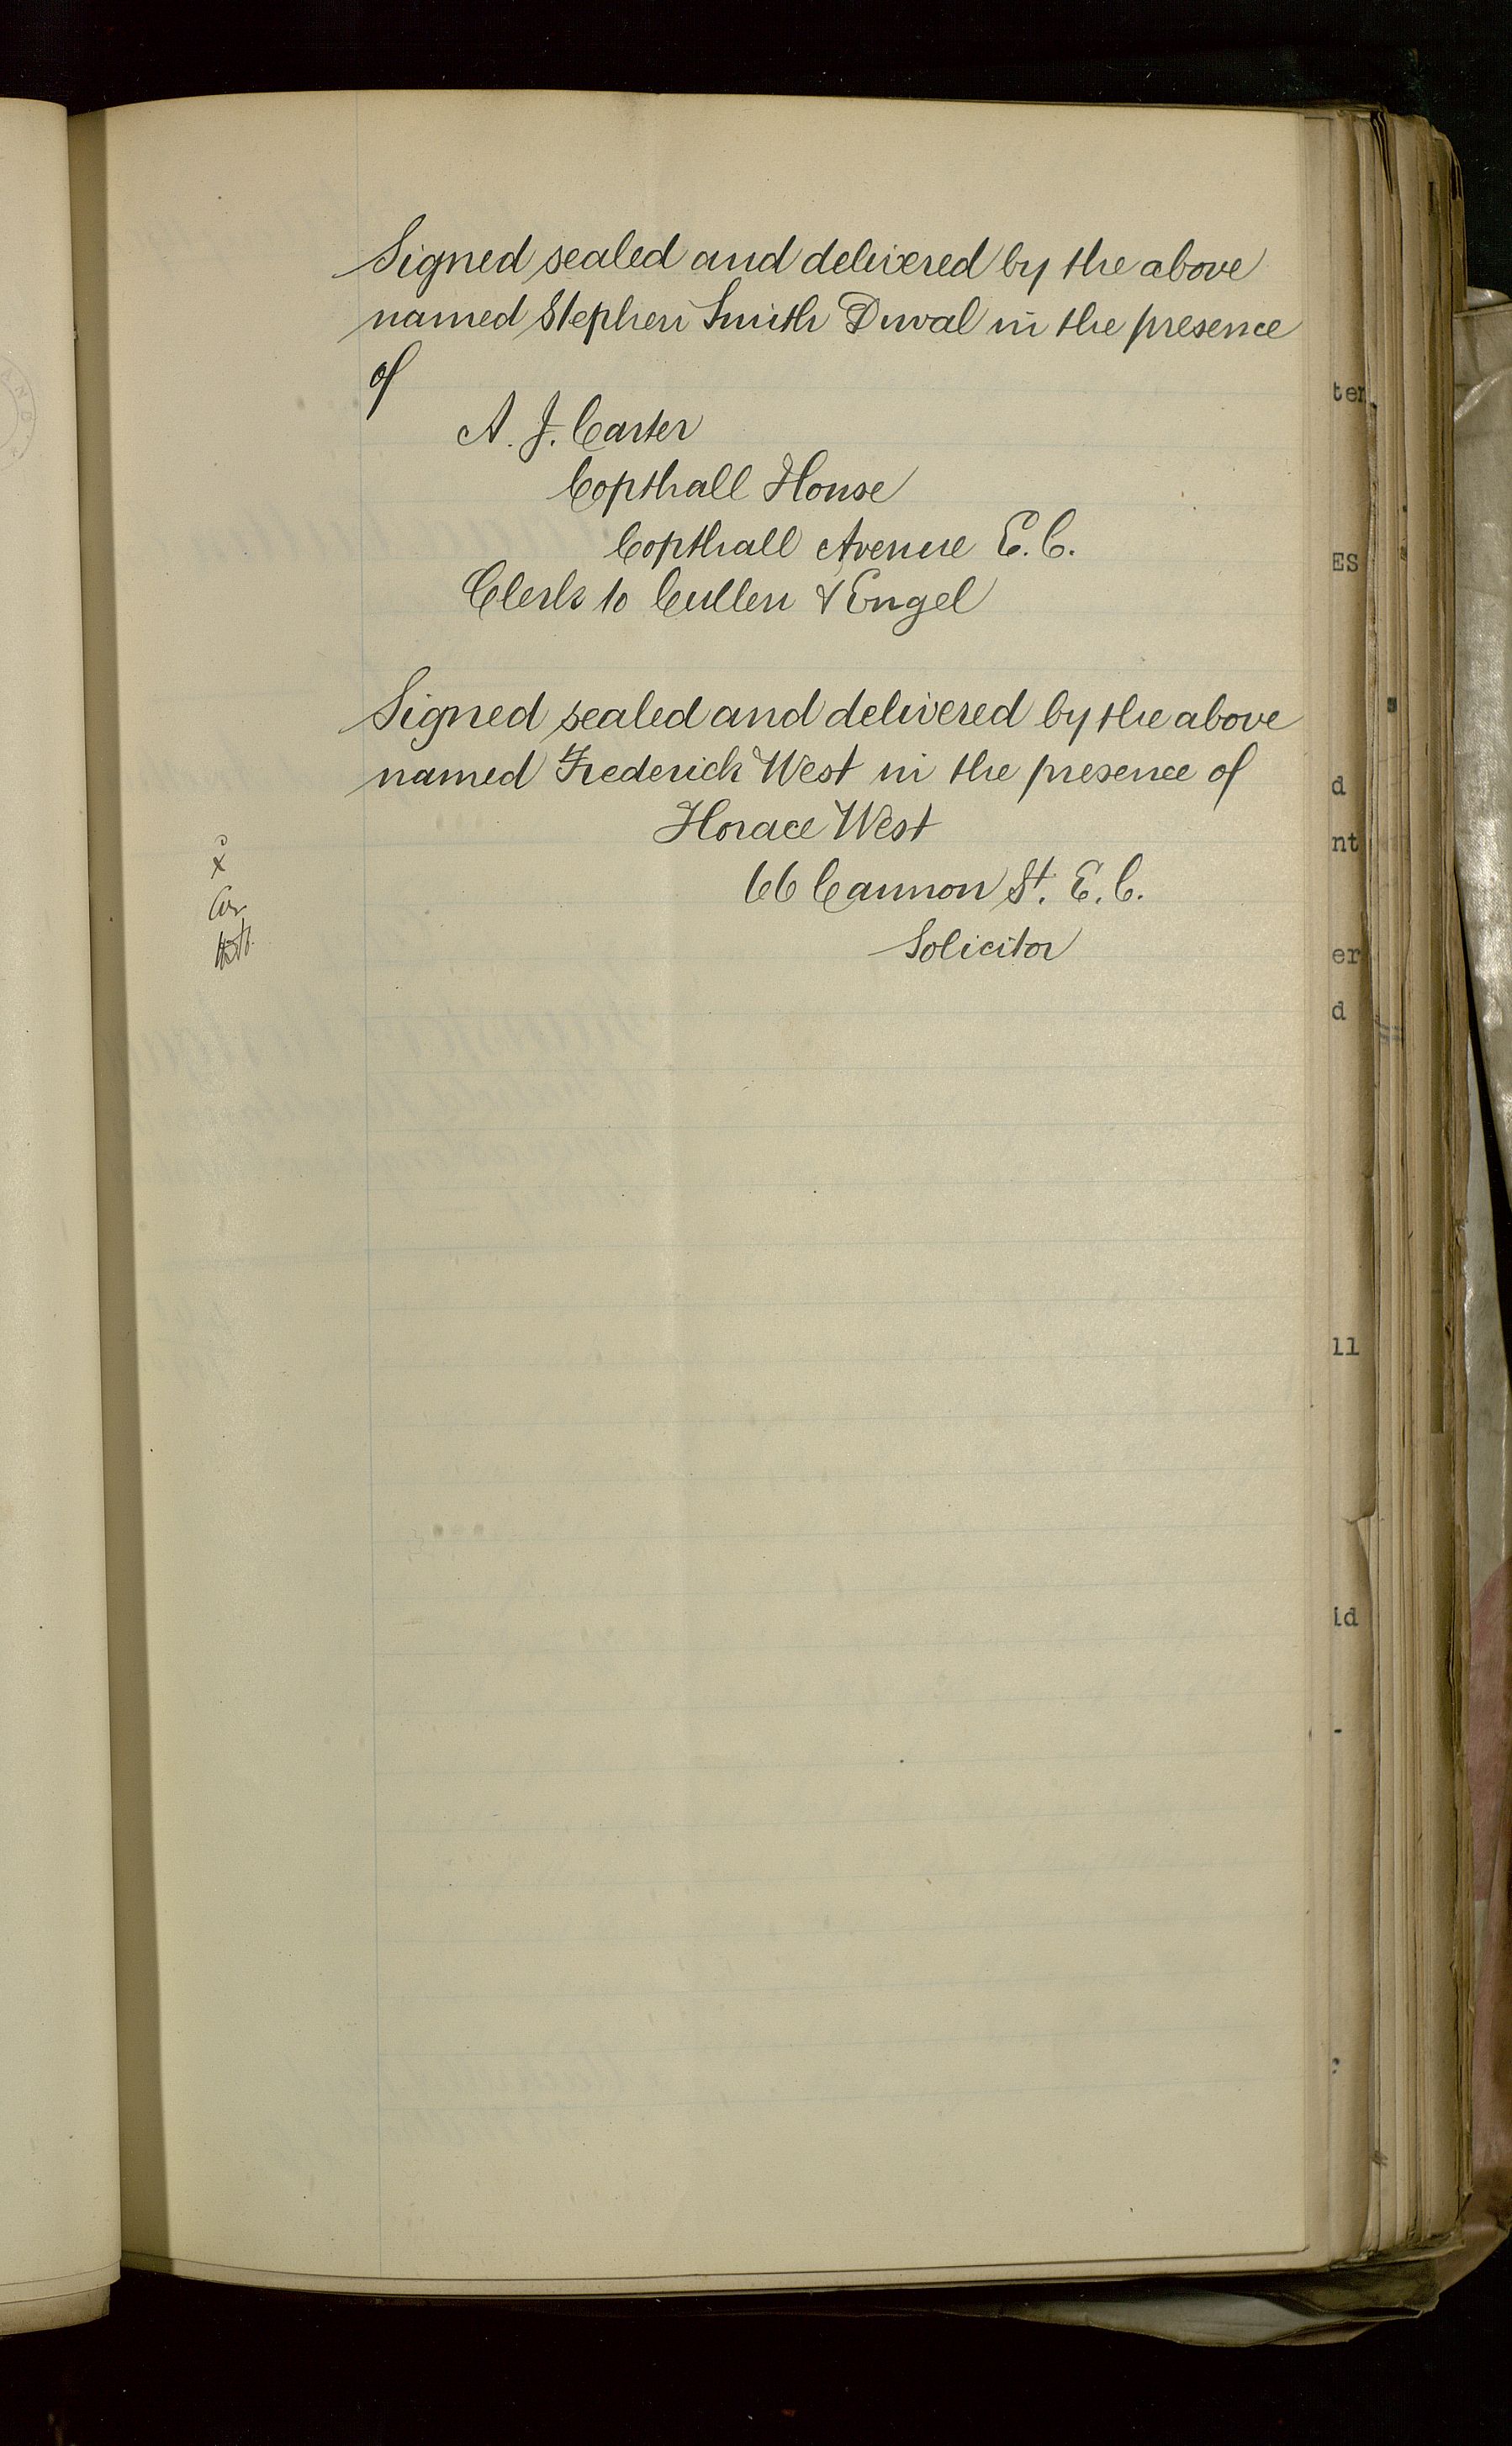 Signed sealed and delivered by the above
named Stephen Smith Duval in the presence
of
A. J. Carter
Copthall House
Copthall Avenue E. C.
Clerk to Cullen & Engel
Signed sealed and delivered by the above
named Frederick West in the presence of
Horace West
66 Cannon St. E. C.
Solicitor
ter
ES
d
nt
er
d
ll
id